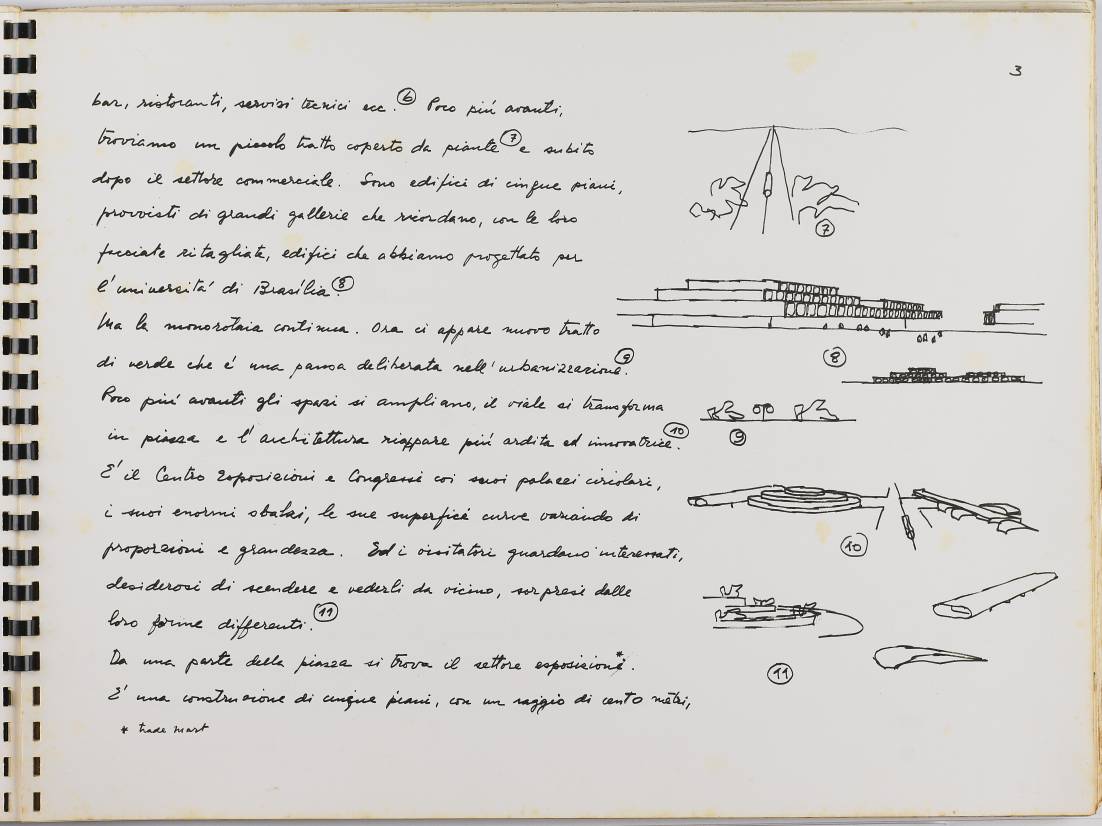 3
bar, ristoranti, servizi tecnici ecc. ⑥ Poco piú avanti,
troviamo un piccolo tratto coperto da piante ⑦ e subito
dopo il settore commerciale. Sono edifici di cinque piani,
provvisti di grandi gallerie che ricordano, con le loro
facciate ritagliate, edifici che abbiamo progettato per
l'universitá di Brasília. ⑧
Ma la monorotaia continua. Ora ci appare nuovo tratto
di verde che é una pausa deliberata nell'urbanizzazione. ⑨
Poco piú avanti gli spazi si ampliano, il viale si transforma
in piazza e l'architettura riappare piú ardita ed innovatrice. ⑩
E' il Centro Esposizioni e Congressi coi suoi palazzi circolari,
i suoi enormi sbalzi, le sue superficé curve variando di
proporzioni e grandezza. Ed i visitatori guardano interessati,
desiderosi di scendere e vederli da vicino, sorpresi dalle
loro forme differenti. ⑪
Da una parte della piazza si trova il settore esposizioni*.
E' una construzione di cinque piani, con un raggio di cento metri,
* trade mart
⑦
⑧
⑨
⑩
⑪